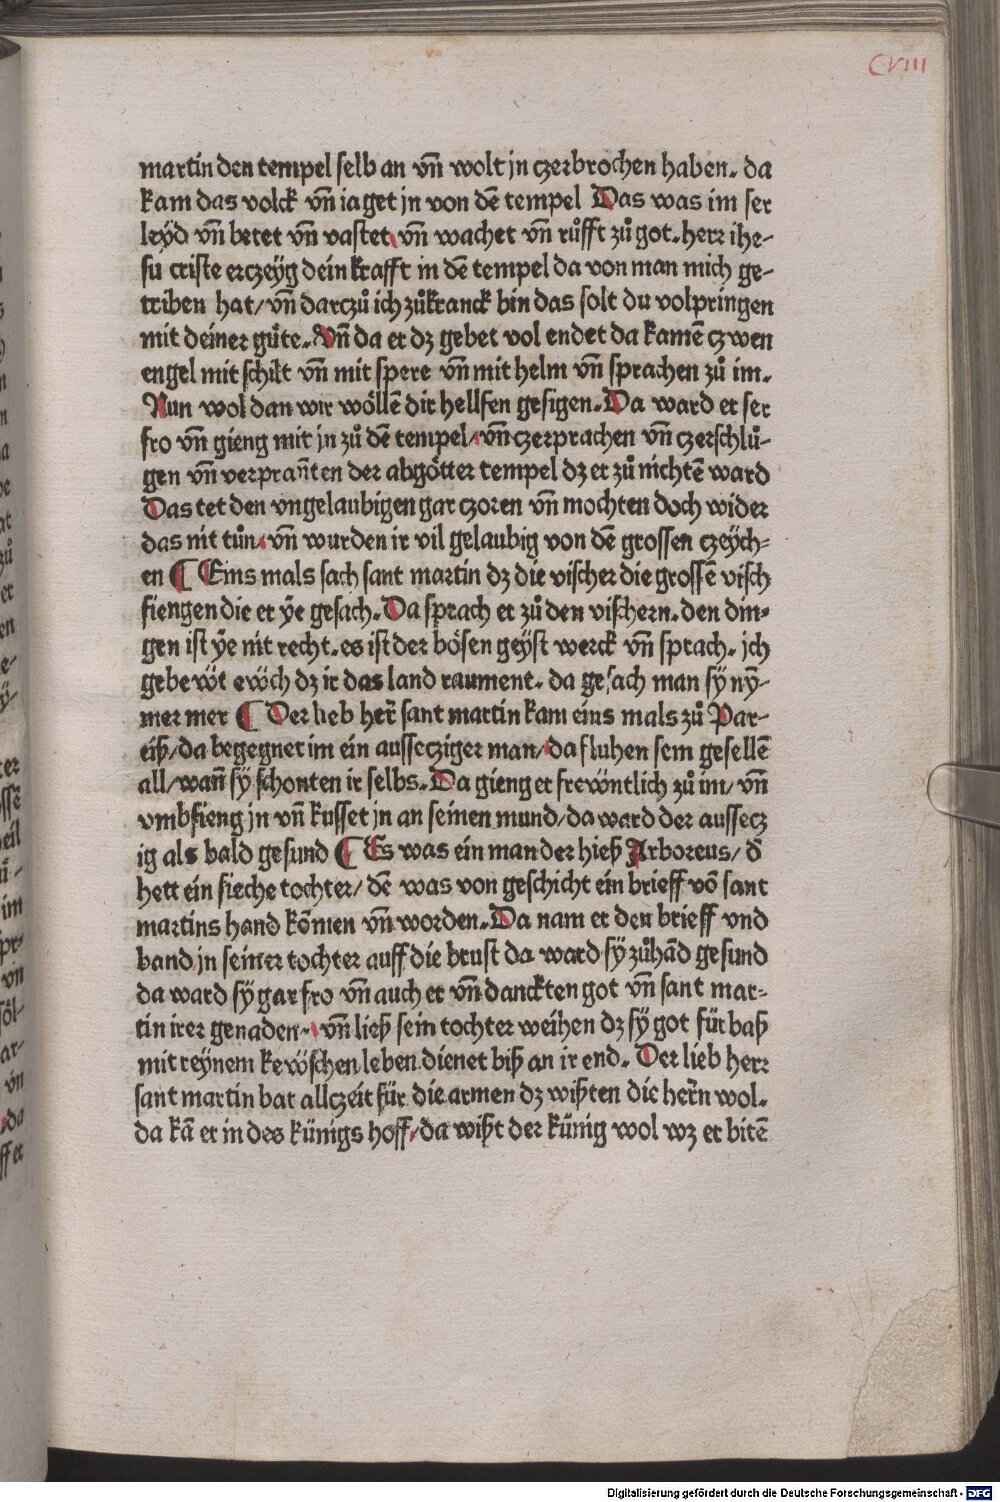 CVIII
martin den tempel selb an vn̄ wolt jn czerbrochen haben. da
kam das volck vn̄ iaget jn von dē tempel Das was im ser
leÿd vn̄ betet vn̄ vastet/ vn̄ wachet vn̄ růfft zů got. herr ihe-
su criste erczeÿg dein krafft in dē tempel da von man mich ge-
triben hat/ vn̄ darczů ich zůkranck bin das solt du volpringen
mit deiner gůte. Vn̄ da er dz gebet vol endet da kamē czwen
engel mit schilt vn̄ mit spere vn̄ mit helm vn̄ sprachen zů im.
Nun wol dan wir wöllē dir hellfen gesigen. Da ward er ser
fro vn̄ gieng mit jn zů dē tempel/ vn̄ czerprachen vn̄ czerschlů-
gen vn̄ verpran̄ten der abgötter tempel dz er zů nichtē ward
Das tet den vngelaubigen gar czoren vn̄ mochten doch wider
das nit tůn. vn̄ wurden ir vil gelaubig von dē grossen czeÿch-
en ¶ Eins mals sach sant martin dz die vischer die grossē visch
fiengen die er ÿe gesach. Da sprach er zů den vischern. den din-
gen ist ÿe nit recht. es ist der bösen geÿst werck vn̄ sprach. jch
gebewt ewch dz ir das land raument. da gesach man sÿ nÿ-
mer mer ¶ Der lieb her̄ sant martin kam eins mals zů Par-
eiß/ da begegnet im ein ausseczziger man/ da fluhen sein gesellē
all/ wan̄ sÿ schonten ir selbs. Da gieng er frewntlich zů im/ vn̄
vmbfieng jn vn̄ kusset jn an seinen mund/ da ward der aussecz
ig als bald gesund ¶ Es was ein man der hieß Arboreus/ d̄
hett ein sieche tochter/ dē was von geschicht ein brieff vō sant
martins hand kōmen vn̄ worden. Da nam er den brieff vnd
band jn seiner tochter auff die brust da ward sÿ zůhād gesund
da ward sÿ gar fro vn̄ auch er vn̄ danckten got vn̄ sant mar-
tin irer genaden. vn̄ ließ sein tochter weihen dz sÿ got für baß
mit reÿnem kewschen leben dienet biß an ir end. Der lieb herr
sant martin bat allczeit für die armen dz wißten die her̄n wol.
da kā er in des künigs hoff/ da wißt der künig wol wz er bitē
Digitalisierung gefördert durch die Deutsche Forschungsgemeinschaft - DFG